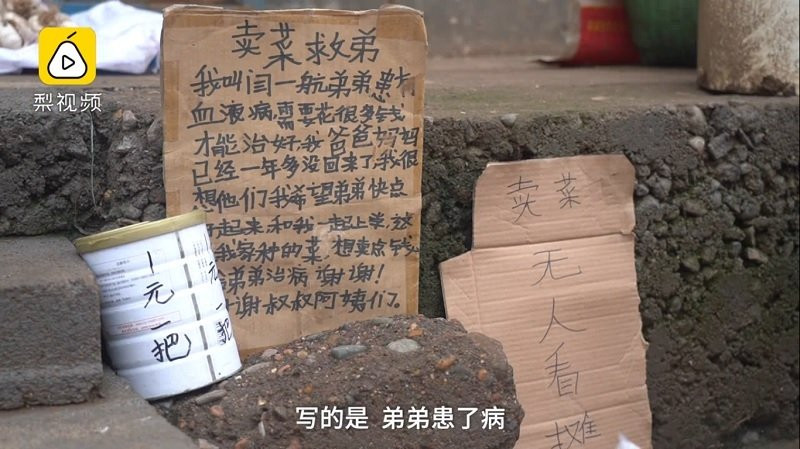 梨视频
卖菜救弟
我叫闫一航弟弟患有
血液病,需要花很多钱
才能治好,我爸爸妈妈
已经一年多没回来了,我很
想他们我希望弟弟快点
起来和我一起上学,这
我家种的菜,想卖点钱
弟弟治病 谢谢!
谢叔叔阿姨们。
1元一把
元一把
卖菜
无人看摊
写的是 弟弟患了病